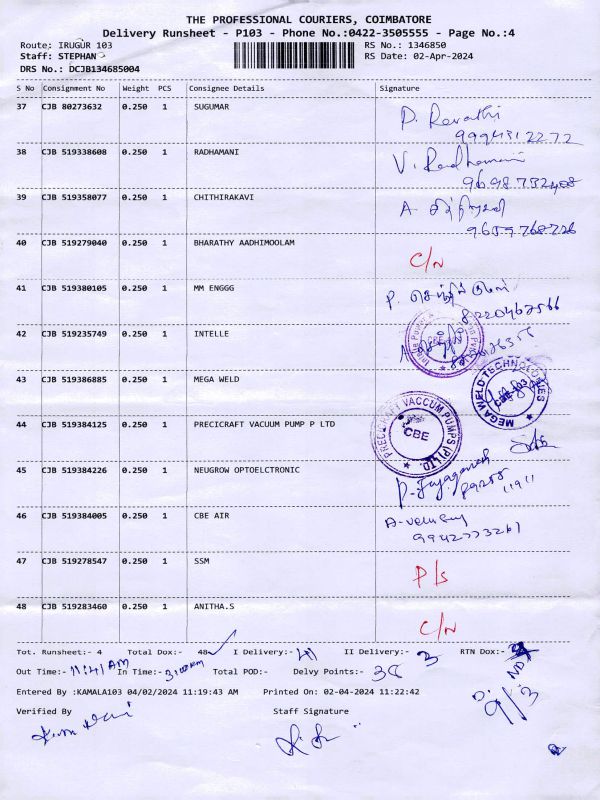 THE PROFESSIONAL COURIERS, COIMBATORE
Delivery Runsheet - P103 - Phone No.:0422-3505555 - Page No.:4
Route: IRUGUR 103 RS No.: 1346850
Staff: STEPHAN RS Date: 02-Apr-2024
DRS No.: DCJB134685004
S No Consignment No Weight PCS Consignee Details Signature
37 CJB 80273632 0.250 1 SUGUMAR P. Revathi
38 CJB 519338608 0.250 1 RADHAMANI V. Radhamani
39 CJB 519358077 0.250 1 CHITHIRAKAVI
9659768726
40 CJB 519279040 0.250 1 BHARATHY AADHIMOOLAM C/N
41 CJB 519380105 0.250 1 MM ENGGG
42 CJB 519235749 0.250 1 INTELLE
43 CJB 519386885 0.250 1 MEGA WELD MEGA WELD-TECHNOLOGIES
44 CJB 519384125 0.250 1 PRECICRAFT VACUUM PUMP P LTD PRECICRAFT VACCUM PUMPS (P) LTD. CBE
45 CJB 519384226 0.250 1 NEUGROW OPTOELCTRONIC
46 CJB 519384005 0.250 1 CBE AIR
47 CJB 519278547 0.250 1 SSM P/s
48 CJB 519283460 0.250 1 ANITHA.S C/N
Tot. Runsheet:- 4 Total Dox:- 48 I Delivery:- II Delivery:- 3 RTN Dox:-
Out Time:- 11:41 AM In Time:- Total POD:- Delvy Points:- 38
Entered By :KAMALA103 04/02/2024 11:19:43 AM Printed On: 02-04-2024 11:22:42
Verified By Staff Signature